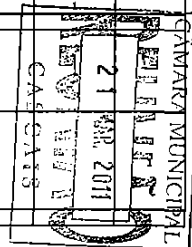 CÂMARA MUNICIPAL
21 MAR. 2011
CASCAIS